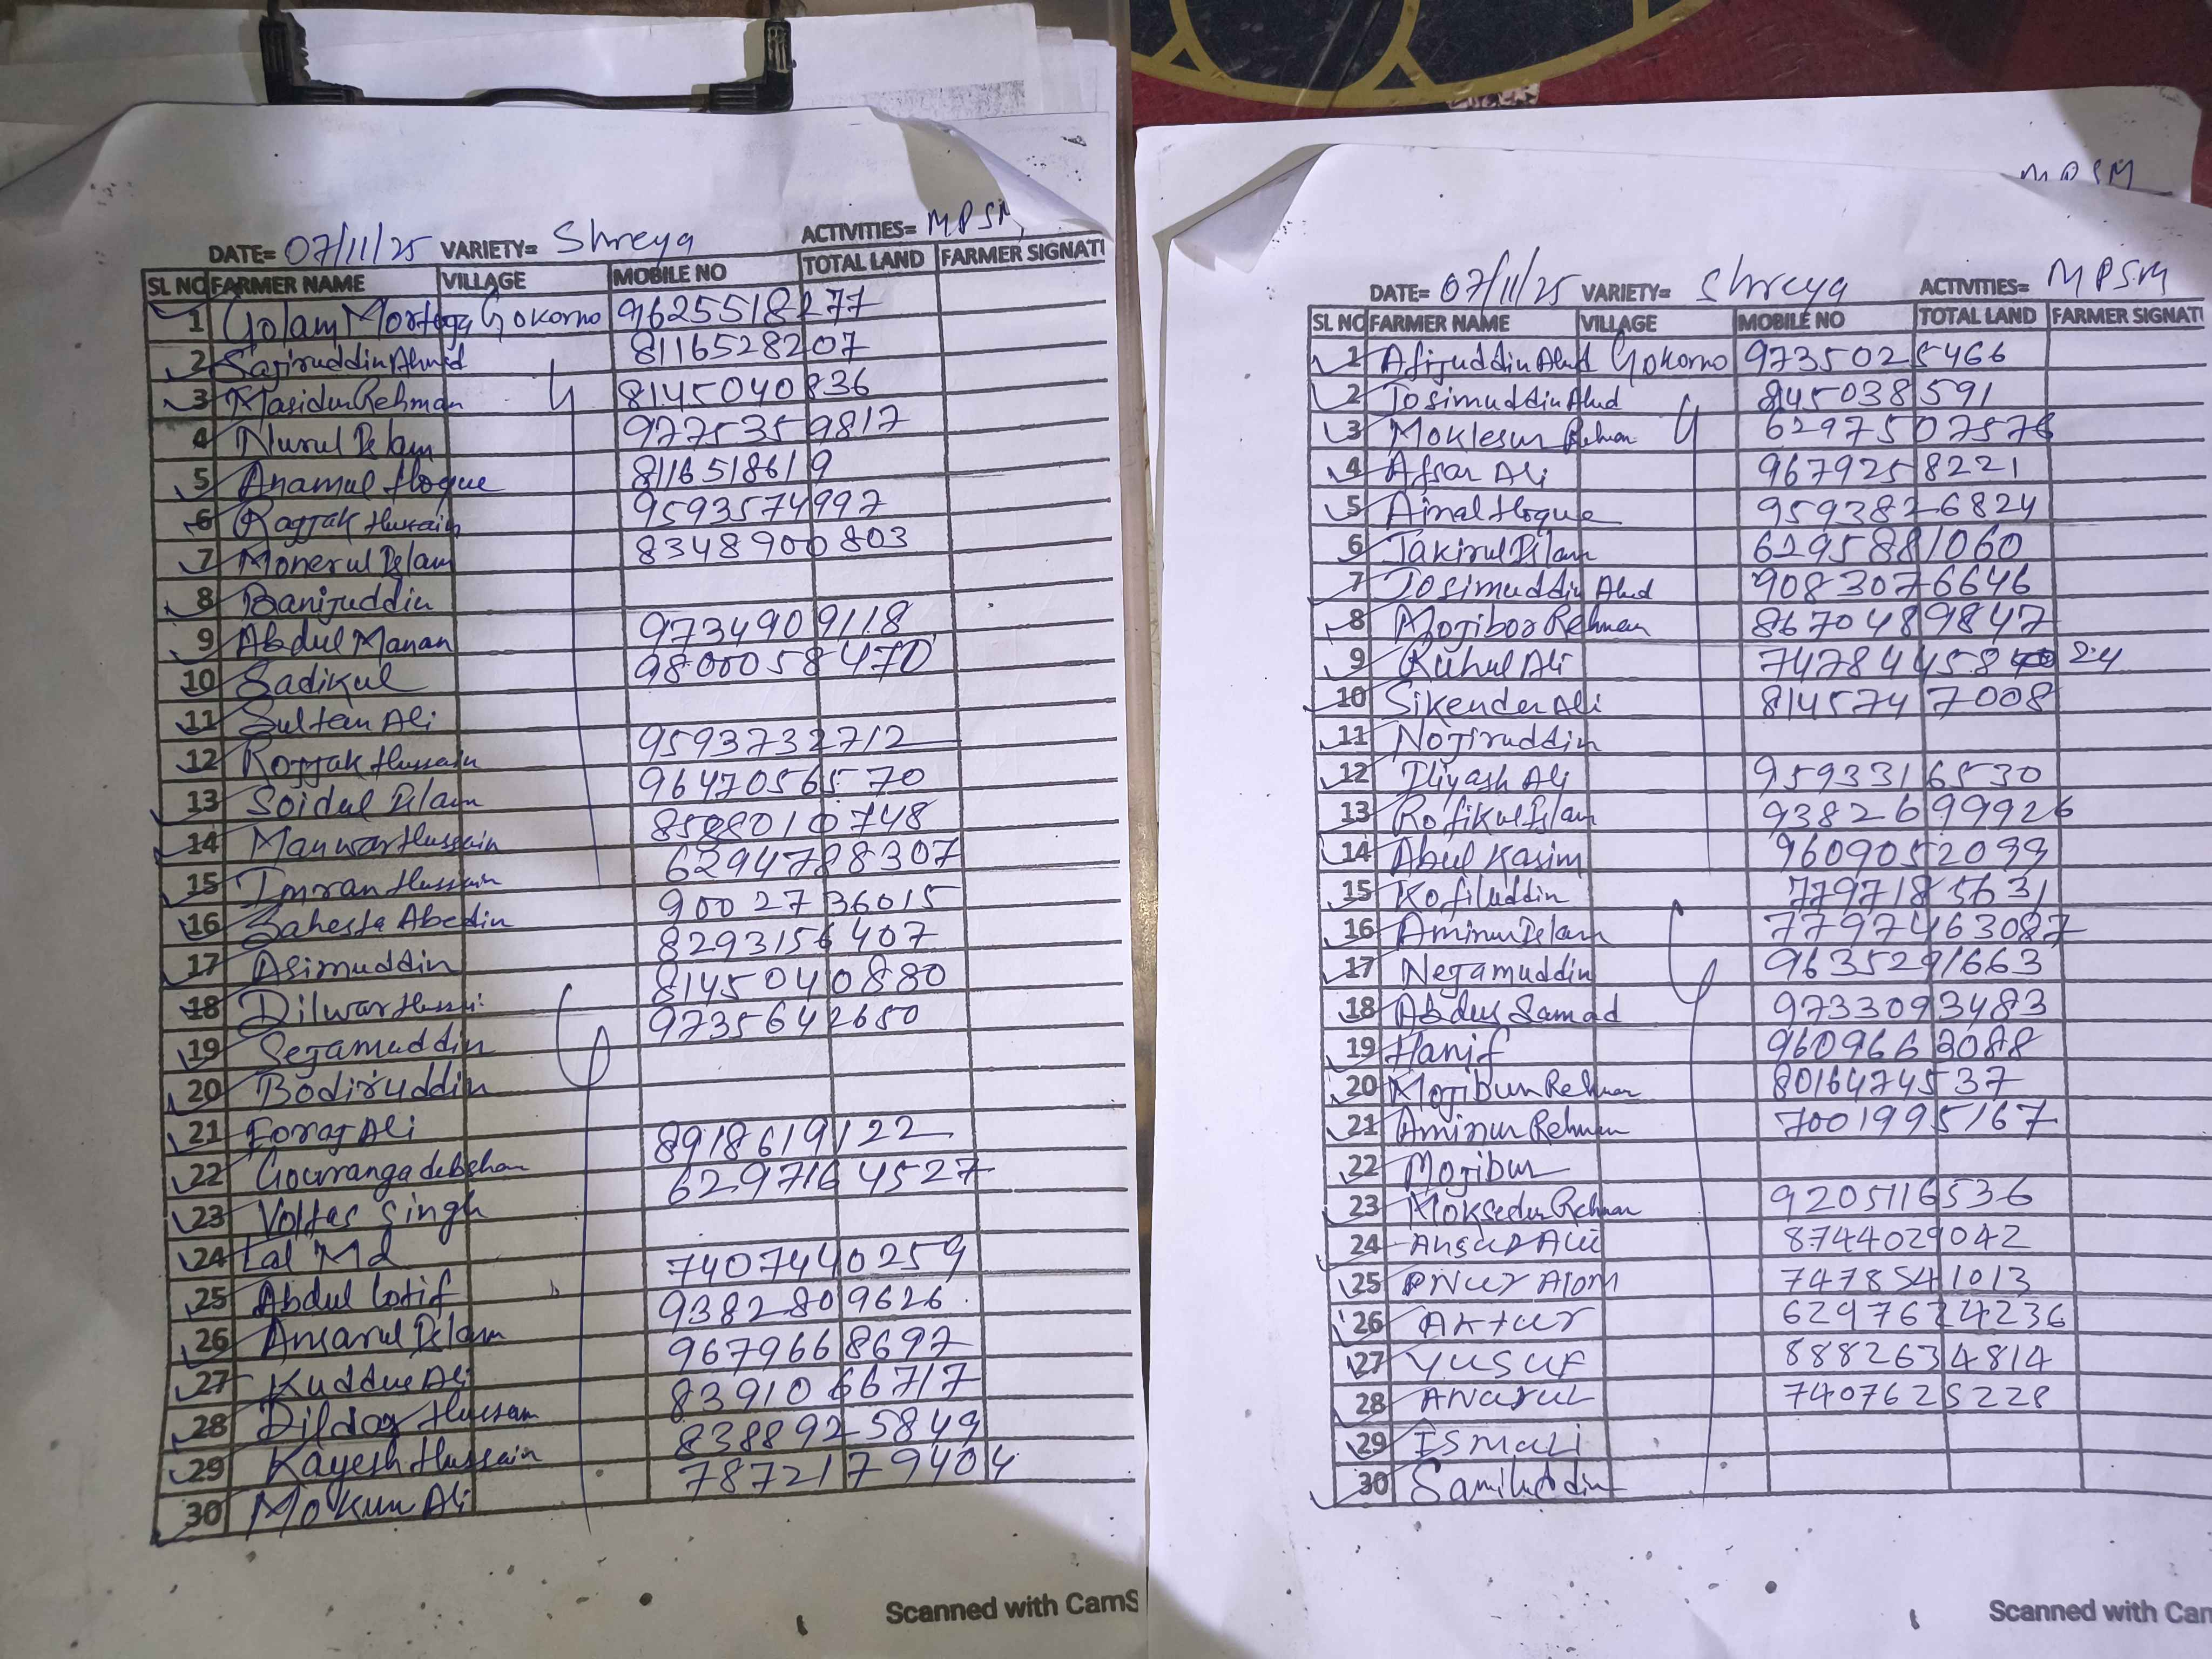 DATE= 07/11/25 VARIETY= Shreya ACTIVITIES= MPSM
SL NO FARMER NAME VILLAGE MOBILE NO TOTAL LAND FARMER SIGNAT
1 Golam Mortoga Gokorno 9625518277
2 Sagiruddin Ahmed 8116528207
3 Masidur Rehman 8145040836
4 Nurul Islam 9775359817
5 Anamul Hoque 8116518619
6 Rajjak Hussain 9593574997
7 Monerul Islam 8348900803
8 Banijuddin
9 Abdul Manan 9734909118
10 Sadikul 9800058470
11 Sultan Ali
12 Rojjak Hussain 9593732712
13 Soidul Islam 9647056570
14 Manwar Hussain 8508010748
15 Imran Hussain 6294788307
16 Sahesta Abedin 9002736015
17 Asimuddin 8293156407
18 Dilwar Hussai 8145040880
19 Sejamuddin 9735642650
20 Bodiruddin
21 Foraj Ali 8918619122
22 Gouranga debshar 6297164527
23 Voltas Singh
24 Lal Md 7407440259
25 Abdul Lotif 9382809626
26 Ansarul Islam 9679668697
27 Kuddus Ali 8391066717
28 Dildar Hussain 8388925849
29 Kayesh Hussain 7872179404
30 Mokun Ali
Scanned with CamS
MPSM
DATE= 07/11/25 VARIETY= Shreya ACTIVITIES= MPSM
SL NO FARMER NAME VILLAGE MOBILE NO TOTAL LAND FARMER SIGNAT
1 Afijuddin Ahd Gokorno 9735025466
2 Josimuddin Ahd 8145038591
3 Moklesur Rehman 6297507576
4 Afsar Ali 9679258221
5 Ainal Hoque 9593826824
6 Jakirul Islam 6295881060
7 Josimuddin Ahd 9083076646
8 Mojibor Rehman 8670489847
9 Ruhul Ali 7478445824
10 Sikender Ali 8145747008
11 Nojiruddin
12 Iliyash Ali 9593316530
13 Rofikul Islam 9382699926
14 Abul Kasim 9609052099
15 Kofiluddin 7797185631
16 Aminur Islam 77974463087
17 Nejamuddin 9635291663
18 Abdus Samad 9733093483
19 Hanif 9609663088
20 Mojibur Rehman 8016474537
21 Aminur Rehman 7001995167
22 Mojibur
23 Moksedur Rehman 9205116536
24 Ansar Ali 8744029042
25 Nur Alom 7478541013
26 Aktur 6297624236
27 YUSUF 8882634814
28 ANarul 7407625228
29 ISmaLi
30 Samiluddin
Scanned with Cam